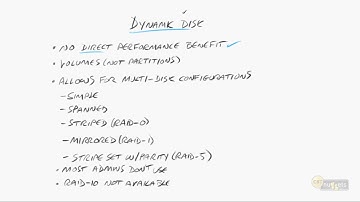 DYNAMIC DISK
• NO DIRECT PERFORMANCE BENEFIT ✓
• VOLUMES (NOT PARTITIONS)
• ALLOWS FOR MULTI-DISK CONFIGURATIONS
- SIMPLE
- SPANNED
- STRIPED (RAID-0)
- MIRRORED (RAID-1)
- STRIPE SET W/PARITY (RAID-5)
• MOST ADMINS DON'T USE
• RAID-10 NOT AVAILABLE